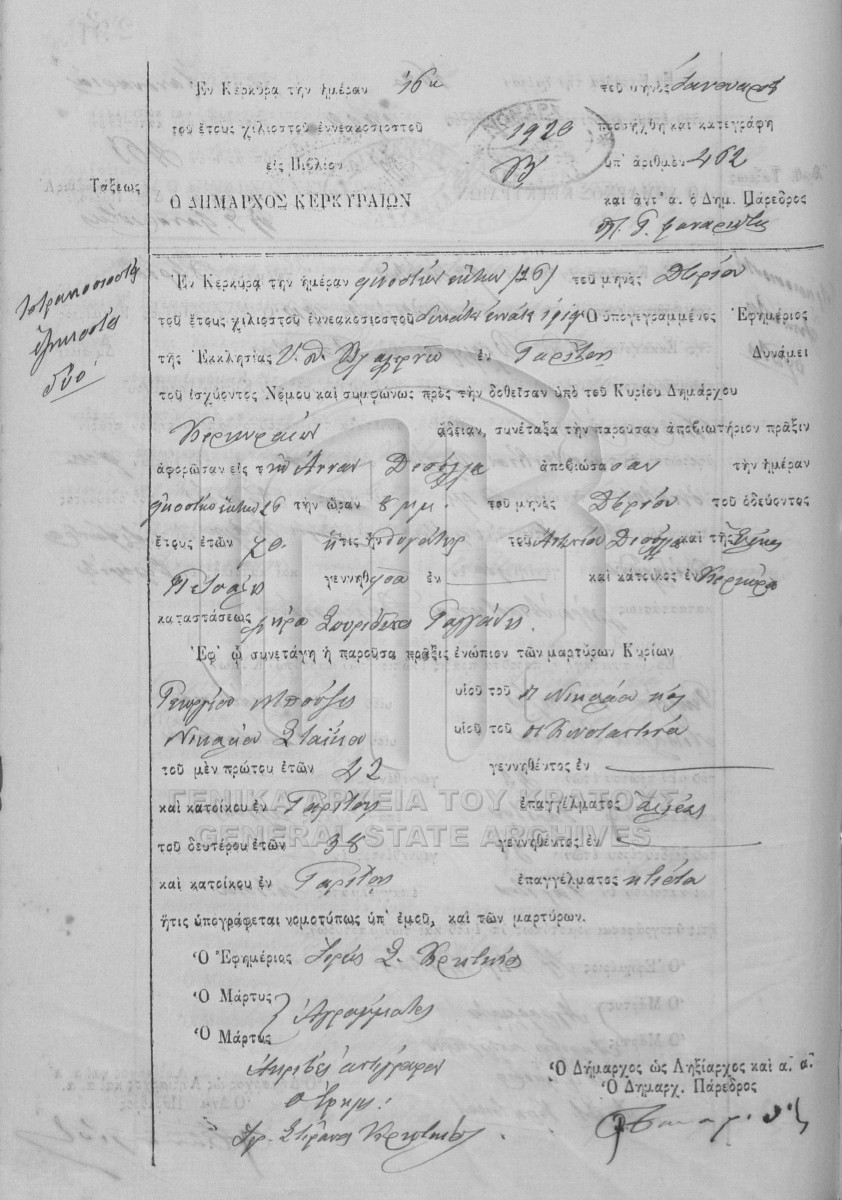 Ἐν Κερκύρᾳ τὴν ἡμέραν 16η τοῦ μηνὸς Ἰανουαρίου
τοῦ ἔτους χιλιοστοῦ ἐννεακοσιοστοῦ 1920 προσήχθη καὶ κατεγράφη
εἰς Βιβλίον Β' ὑπ' ἀριθμὸν 462
Τάξεως
Ὁ ΔΗΜΑΡΧΟΣ ΚΕΡΚΥΡΑΙΩΝ καὶ ἀντ' α. ὁ Δημ. Πάρεδρος
τετρακοσιοστὴ
ἑξηκοστὴ
δύο
Ἐν Κερκύρᾳ τὴν ἡμέραν εἰκοστὴν ἕκτην (26) τοῦ μηνὸς Δ/βρίου
τοῦ ἔτους χιλιοστοῦ ἐννεακοσιοστοῦ δεκάτου ἐνάτου Ὁ ὑπογεγραμμένος Ἐφημέριος
τῆς Ἐκκλησίας Υ. Θ. ἐν Γαρίτσῃ Δυνάμει
τοῦ ἰσχύοντος Νόμου καὶ συμφώνως πρὸς τὴν δοθεῖσαν ὑπὸ τοῦ Κυρίου Δημάρχου
Κερκυραίων ἄδειαν, συνέταξα τὴν παροῦσαν ἀποβιωτήριον πρᾶξιν
ἀφορῶσαν εἰς τὴν Ἄνναν ἀποβιώσασαν τὴν ἡμέραν
εἰκοστὴν ἕκτην 26 τὴν ὥραν 8 μ.μ. τοῦ μηνὸς Δ/βρίου τοῦ ὁδεύοντος
ἔτους ἐτῶν 70. ἥτις ἦν θυγάτηρ τοῦ Ἀντωνίου καὶ τῆς Ἑλένης
γεννηθεῖσα ἐν καὶ κάτοικος ἐν Κερκύρᾳ
καταστάσεως χήρα Σπυρίδωνος
Ἐφ' ᾧ συνετάγη ἡ παροῦσα πρᾶξις ἐνώπιον τῶν μαρτύρων Κυρίων
Γεωργίου Μπούζη υἱοῦ τοῦ π Νικολάου καὶ
Νικολάου Σταίκου υἱοῦ τοῦ π Κωνσταντίνου
τοῦ μὲν πρώτου ἐτῶν 42 γεννηθέντος ἐν
καὶ κατοίκου ἐν Γαρίτσῃ ἐπαγγέλματος ἁλιέως
ΓΕΝΙΚΑ ΑΡΧΕΙΑ ΤΟΥ ΚΡΑΤΟΥΣ
GENERAL STATE ARCHIVES
τοῦ δευτέρου ἐτῶν 38 γεννηθέντος ἐν
καὶ κατοίκου ἐν Γαρίτσῃ ἐπαγγέλματος κτίστου
ἥτις ὑπογράφεται νομοτύπως ὑπ' ἐμοῦ, καὶ τῶν μαρτύρων.
Ὁ Ἐφημέριος Ἱερεὺς Σ. Κρητικός
Ὁ Μάρτυς
Ὁ Μάρτυς Ἀγράμματοι
Ἀκριβὲς ἀντίγραφον
Ὁ Ἐφημ:
Ἱερ. Στέφανος Κρητικός
Ὁ Δήμαρχος ὡς Ληξίαρχος καὶ α. α.
Ὁ Δημαρχ. Πάρεδρος